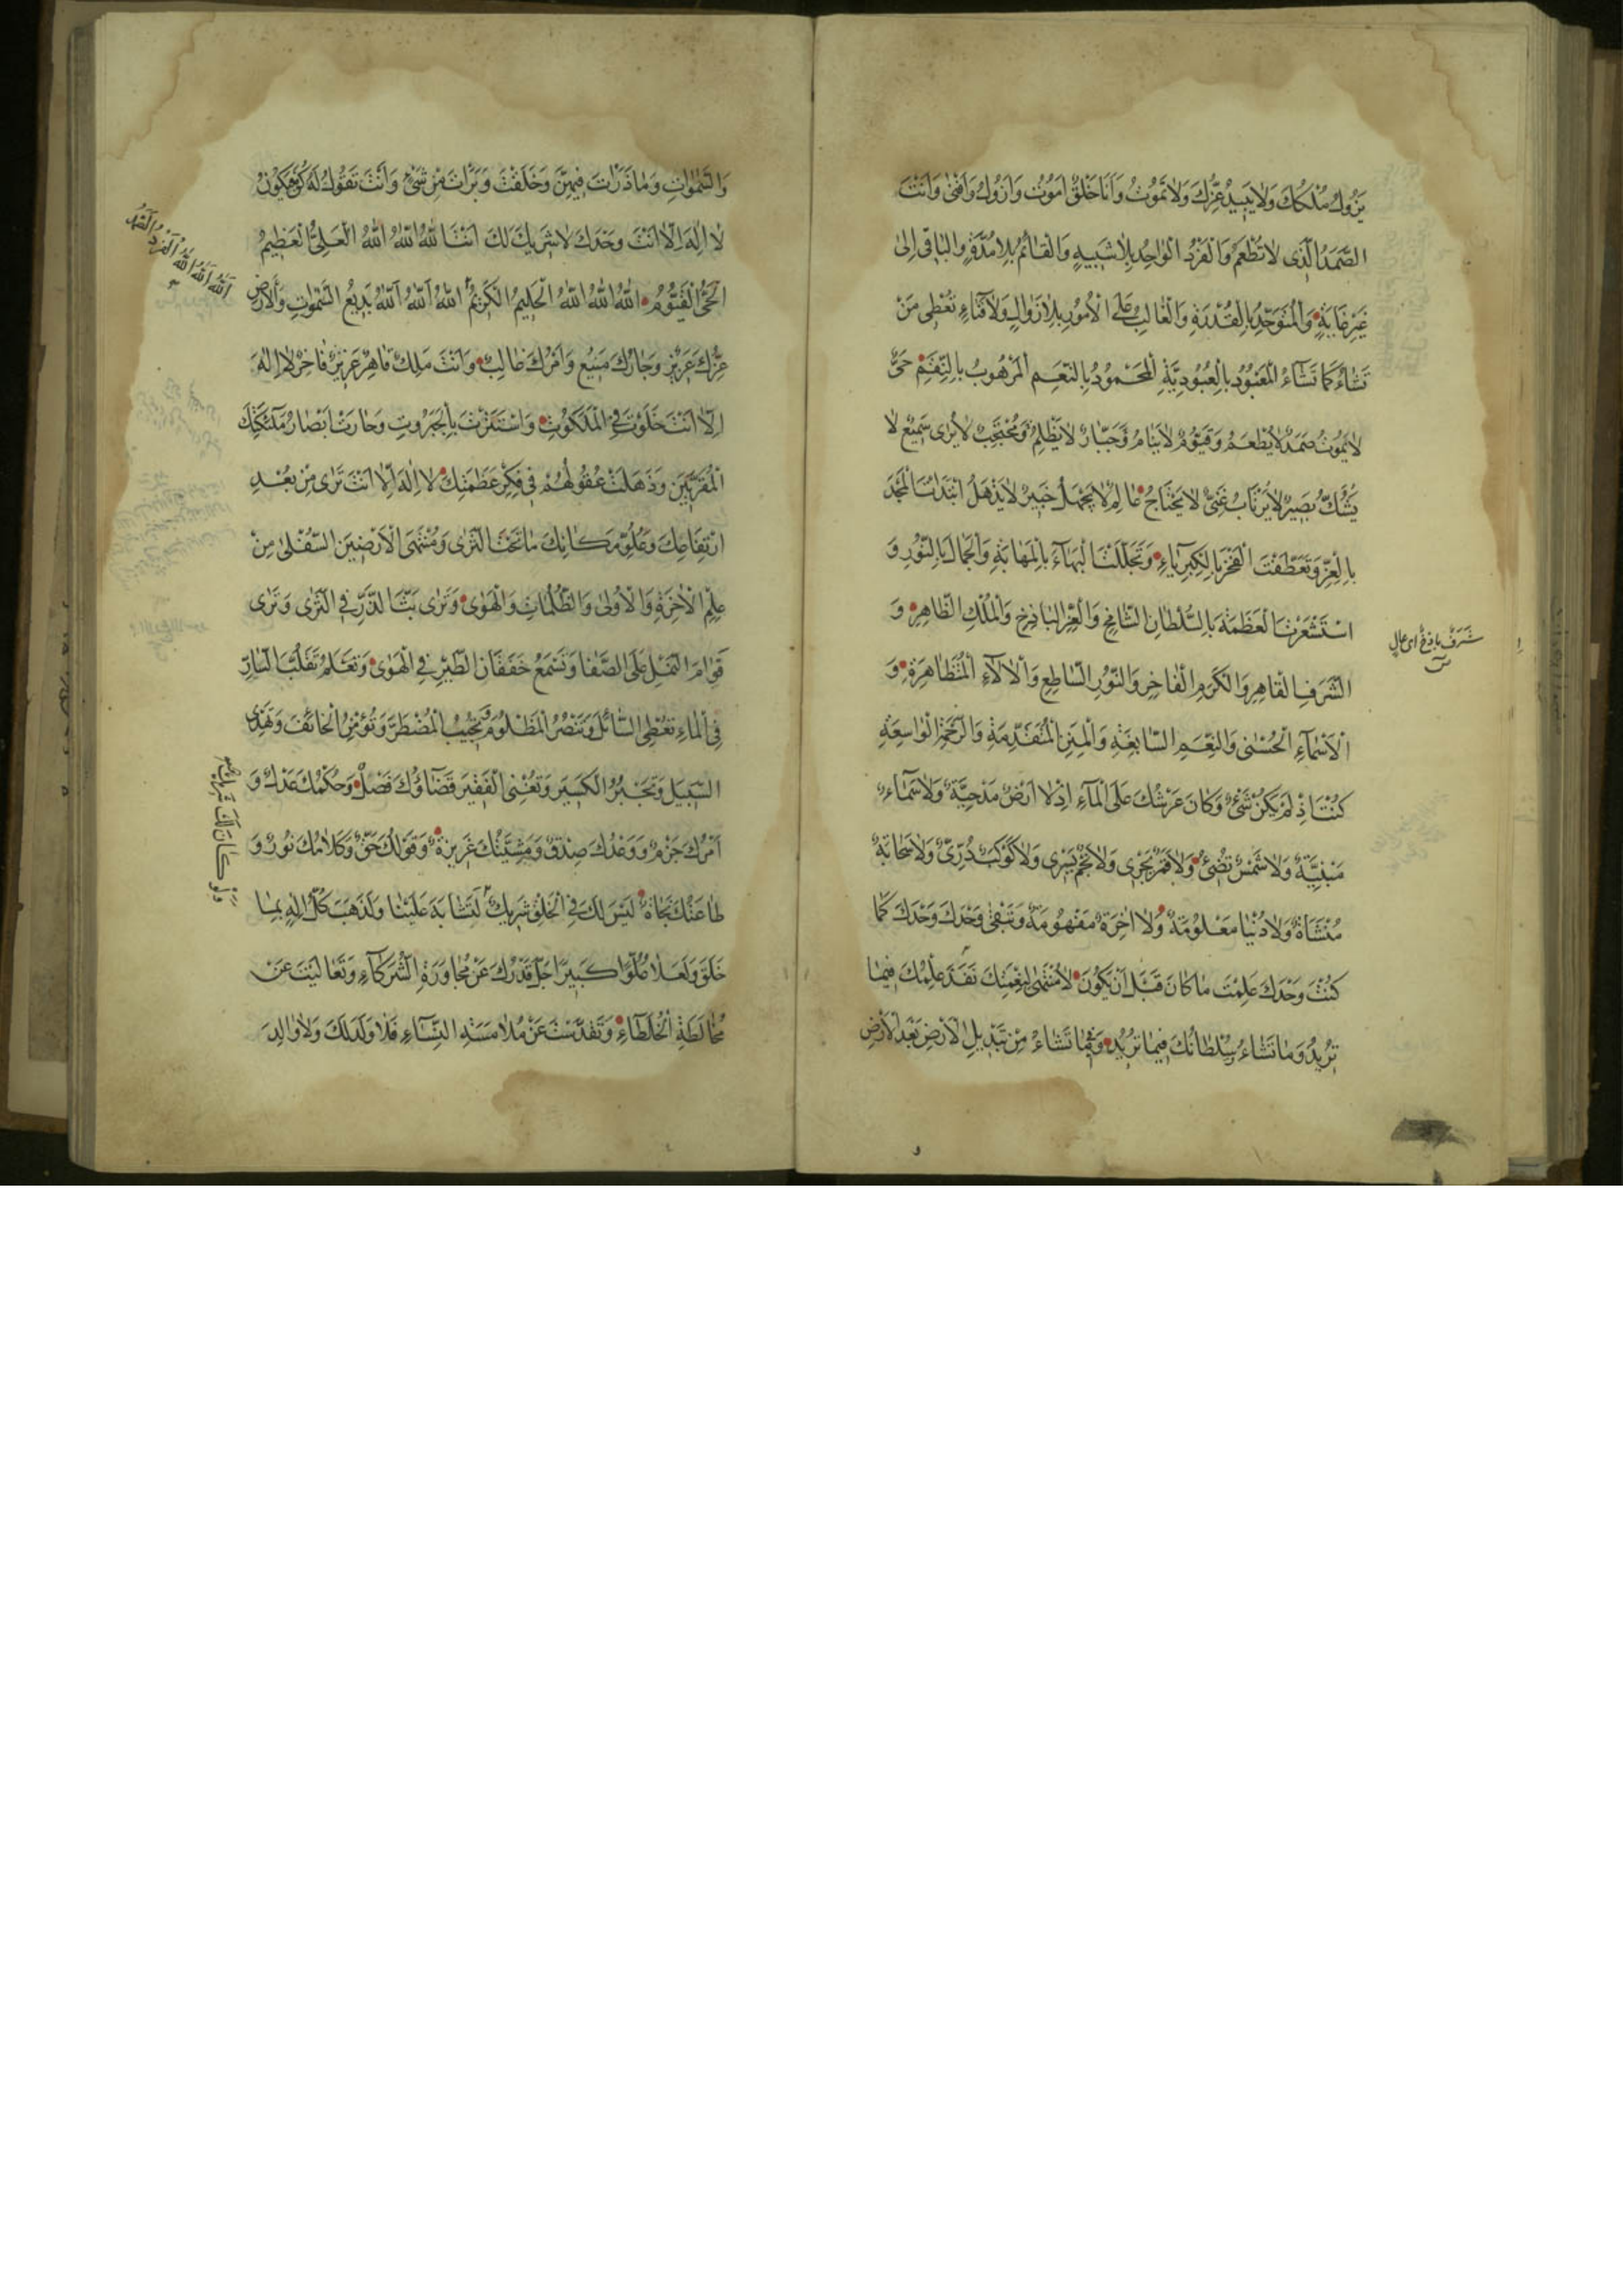 يَزُولُ مُلْكُكَ وَلَا يَبِيدُ عِزُّكَ وَلَا تَمُوتُ وَاَنَا خَلْقٌ اَمُوتُ وَاَزُولُ وَاَفْنٰى وَاَنْتَ
الصَّمَدُ الَّذِى لَا تُطْعَمُ وَالْفَرْدُ الْوَاحِدُ بِلَا شَبِيهٍ وَالْقَائِمُ بِلَا مُدَّةٍ وَالْبَاقِى اِلٰى
غَيْرِ غَايَةٍ وَالْمُتَوَحِّدُ بِالْقُدْرَةِ وَالْغَالِبُ عَلَى الْاُمُورِ بِلَا زَوَالٍ وَلَا فَنَاءٍ تُعْطِى مَنْ
تَشَاءُ كَمَا تَشَاءُ الْمَعْبُودُ بِالْعُبُودِيَّةِ الْمَحْمُودُ بِالنِّعَمِ الْمَرْهُوبُ بِالنِّقَمِ حَىٌّ
لَا يَمُوتُ صَمَدٌ لَا يُطْعَمُ وَقَيُّومٌ لَا يَنَامُ وَجَبَّارٌ لَا يَظْلِمُ وَمُحْتَجِبٌ لَا يُرٰى سَمِيعٌ لَا
يَشُكُّ بَصِيرٌ لَا يَرْتَابُ غَنِىٌّ لَا يَحْتَاجُ عَالِمٌ لَا يَجْهَلُ خَبِيرٌ لَا يَذْهَلُ ابْتَدَأْتَ الْمَجْدَ
بِالْعِزِّ وَتَعَطَّفْتَ الْفَخْرَ بِالْكِبْرِيَاءِ وَتَجَلَّلْتَ الْبَهَاءَ بِالْمَهَابَةِ وَالْجَمَالَ بِالنُّورِ وَ
اسْتَشْعَرْتَ الْعَظَمَةَ بِالسُّلْطَانِ الشَّامِخِ وَالْعِزِّ الْبَاذِخِ وَالْمُلْكِ الظَّاهِرِ وَ
شَرَفٌ باذِخٌ اى عالٍ
الشَّرَفِ الْقَاهِرِ وَالْكَرَمِ الْفَاخِرِ وَالنُّورِ السَّاطِعِ وَالْاٰلَاءِ الْمُتَظَاهِرَةِ وَ
الْاَسْمَاءِ الْحُسْنٰى وَالنِّعَمِ السَّابِغَةِ وَالْمِنَنِ الْمُتَقَدِّمَةِ وَالرَّحْمَةِ الْوَاسِعَةِ
كُنْتَ اِذْ لَمْ يَكُنْ شَىْءٌ وَكَانَ عَرْشُكَ عَلَى الْمَاءِ اِذْ لَا اَرْضٌ مَدْحِيَّةٌ وَلَا سَمَاءٌ
مَبْنِيَّةٌ وَلَا شَمْسٌ تُضِىءُ وَلَا قَمَرٌ يَجْرِى وَلَا نَجْمٌ يَسْرِى وَلَا كَوْكَبٌ دُرِّىٌّ وَلَا سَحَابَةٌ
مُنْشَاَةٌ وَلَا دُنْيَا مَعْلُومَةٌ وَلَا اٰخِرَةٌ مَفْهُومَةٌ وَتَبْقٰى وَحْدَكَ وَحْدَكَ كَمَا
كُنْتَ وَحْدَكَ عَلِمْتَ مَا كَانَ قَبْلَ اَنْ يَكُونَ لَا مُنْتَهٰى لِنِعْمَتِكَ نَفَذَ عِلْمُكَ فِيمَا
تُرِيدُ وَمَا تَشَاءُ وَسُلْطَانُكَ فِيمَا تُرِيدُ وَفِيمَا تَشَاءُ مِنْ تَبْدِيلِ الْاَرْضِ بَعْدَ الْاَرْضِ
وَالسَّمٰوَاتِ وَمَا ذَرَاْتَ فِيهِنَّ وَخَلَقْتَ وَبَرَاْتَ مِنْ شَىْءٍ وَاَنْتَ تَقُولُ لَهُ كُنْ فَيَكُونُ
لَا اِلٰهَ اِلَّا اَنْتَ وَحْدَكَ لَا شَرِيكَ لَكَ اَنْتَ اللّٰهُ اللّٰهُ اللّٰهُ الْعَلِىُّ الْعَظِيمُ
اَللّٰهُ اَللّٰهُ اَللّٰهُ الْفَرْدُ الصَّمَدُ
الْحَىُّ الْقَيُّومُ اللّٰهُ اللّٰهُ اللّٰهُ الْحَلِيمُ الْكَرِيمُ اَللّٰهُ اَللّٰهُ اَللّٰهُ بَدِيعُ السَّمٰوَاتِ وَالْاَرْضِ
عِزُّكَ عَزِيزٌ وَجَارُكَ مَنِيعٌ وَاَمْرُكَ غَالِبٌ وَاَنْتَ مَلِكٌ قَاهِرٌ عَزِيزٌ فَاخِرٌ لَا اِلٰهَ
اِلَّا اَنْتَ خَلَوْتَ فِى الْمَلَكُوتِ وَاسْتَتَرْتَ بِالْجَبَرُوتِ وَحَارَتْ اَبْصَارُ مَلٰئِكَتِكَ
الْمُقَرَّبِينَ وَذَهَلَتْ عُقُولُهُمْ فِى فِكْرِ عَظَمَتِكَ لَا اِلٰهَ اِلَّا اَنْتَ تَرٰى مِنْ بُعْدِ
ارْتِفَاعِكَ وَعُلُوِّ مَكَانِكَ مَا تَحْتَ الثَّرٰى وَمُنْتَهَى الْاَرَضِينَ السُّفْلٰى مِنْ
عِلْمِ الْاٰخِرَةِ وَالْاُولٰى وَالظُّلُمَاتِ وَالْهَوٰى وَتَرٰى بَثَّ الذَّرِّ فِى الثَّرٰى وَتَرٰى
قَوَامَ النَّمْلِ عَلَى الصَّفَا وَتَسْمَعُ خَفَقَانَ الطَّيْرِ فِى الْهَوٰى وَتَعْلَمُ تَقَلُّبَ السَّارِى
فِى الْمَاءِ تُعْطِى السَّائِلَ وَتَنْصُرُ الْمَظْلُومَ وَتُجِيبُ الْمُضْطَرَّ وَتُؤْمِنُ الْخَائِفَ وَتَهْدِى
السَّبِيلَ وَتَجْبُرُ الْكَسِيرَ وَتُغْنِى الْفَقِيرَ قَضَاؤُكَ فَصْلٌ وَحُكْمُكَ عَدْلٌ وَ
اَمْرُكَ جَزْمٌ وَوَعْدُكَ صِدْقٌ وَمَشِيَّتُكَ عَزِيزَةٌ وَقَوْلُكَ حَقٌّ وَكَلَامُكَ نُورٌ وَ
طَاعَتُكَ نَجَاةٌ لَيْسَ لَكَ فِى الْخَلْقِ شَرِيكٌ لَتَشَابَهَ عَلَيْنَا وَلَذَهَبَ كُلُّ اِلٰهٍ بِمَا
وَلَوْ كَانَ لَكَ شَرِيكٌ
خَلَقَ وَلَعَلَا عُلُوًّا كَبِيرًا جَلَّ قَدْرُكَ عَنْ مُجَاوَرَةِ الشُّرَكَاءِ وَتَعَالَيْتَ عَنْ
مُخَالَطَةِ الْخُلَطَاءِ وَتَقَدَّسْتَ عَنْ مُلَامَسَةِ النِّسَاءِ فَلَا وَلَدَ لَكَ وَلَا وَالِدَ